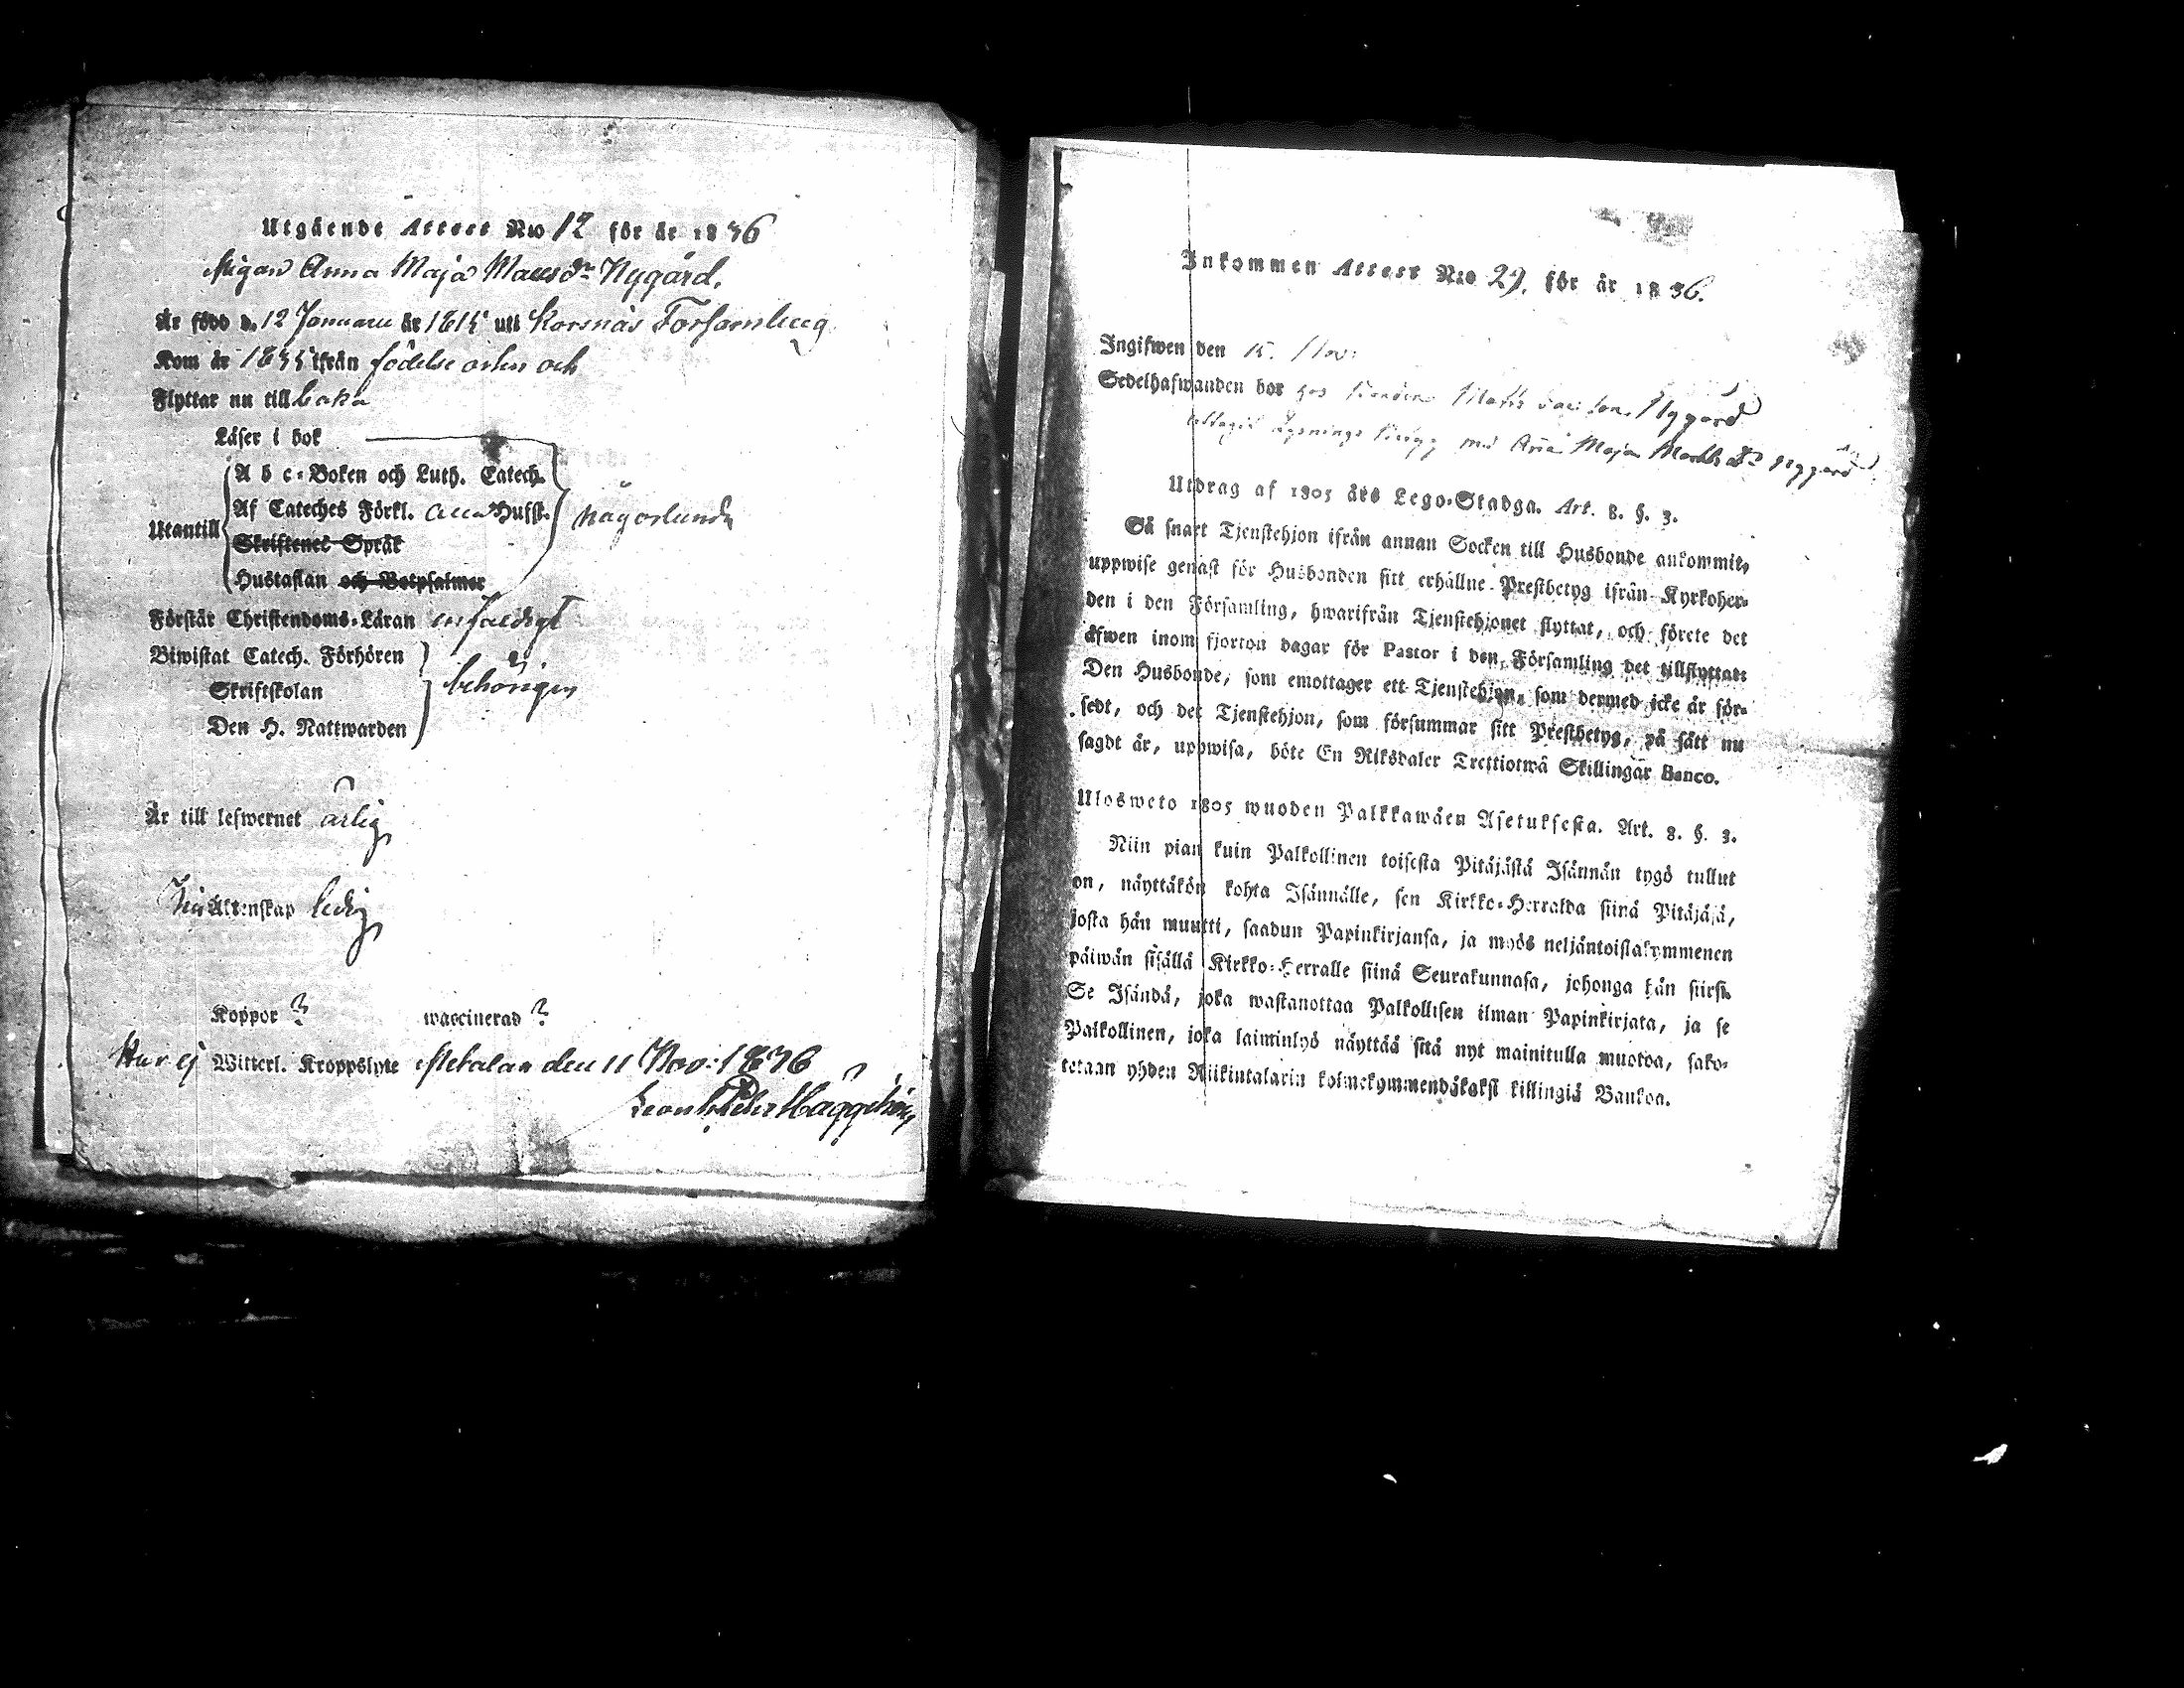 Utgående Attest No 12 för år 1836
Pigan Anna Maja Matsdr Nygård.
Är född d. 12 Januarii år 1815 uti Korsnäs Församling
Kom år 1835 ifrån födelse orten och
Flyttar nu tillbaka
Läser i bok
A b c-Boken och Luth. Catech.
Af Cateches Förkl. Hufst. någorlunda
Utantill
Skriftenes Språk
Hustaflan och Botpsalmer
Förstår Christendoms-Läran enfaldigt
Biwistat Catech. Förhören
Skriftskolan behörigen
Den H. Nattwarden
Är till lefwernet ärlig
Till Äktenskap ledig
Koppor ? waccinerad ?
Har ej Witterl. Kroppslyte den 11 Nov: 1836
Häggblom
Inkommen Attest No 29. för år 1836.
Ingifwen den 15. Nov:
Sedelhafwanden bor hos Bonden Matts Nygård
lysnings med Anna Maja Mattsdr Nygård
Utdrag af 1805 års Lego-Stadga. Art. 8. §. 3.
Så snart Tjenstehjon ifrån annan Socken till Husbonde ankommit,
uppwise genast för Husbonden sitt erhållne Prestbetyg ifrån Kyrkoher-
den i den Församling, hwarifrån Tjenstehjonet flyttat, och förete det
äfwen inom fjorton dagar för Pastor i den Församling det tillflyttat:
Den Husbonde, som emottager ett Tjenstehjon, som dermed icke är för-
sedt, och det Tjenstehjon, som försummar sitt Prestbetyg, på sätt nu
sagdt är, uppwisa, böte En Riksdaler Trettiotwå Skillingar Banco.
Ulosweto 1805 wuoden Palkkawäen Asetuksesta. Art. 8. §. 3.
Niin pian kuin Palkollinen toisesta Pitäjästä Isännän tygö tullut
on, näyttäkön kohta Isännälle, sen Kirkko-Herralda siinä Pitäjäsä,
josta hän muutti, saadun Papinkirjansa, ja myös neljäntoistakymmenen
päiwän sisällä Kirkko-Herralle siinä Seurakunnasa, johonga hän siirsi.
Se Isändä, joka wastanottaa Palkollisen ilman Papinkirjata, ja se
Palkollinen, joka laiminlyö näyttää sitä nyt mainitulla muotoa, sako-
tetaan yhden Riikintalarin kolmekymmendäkaksi killingiä Bankoa.